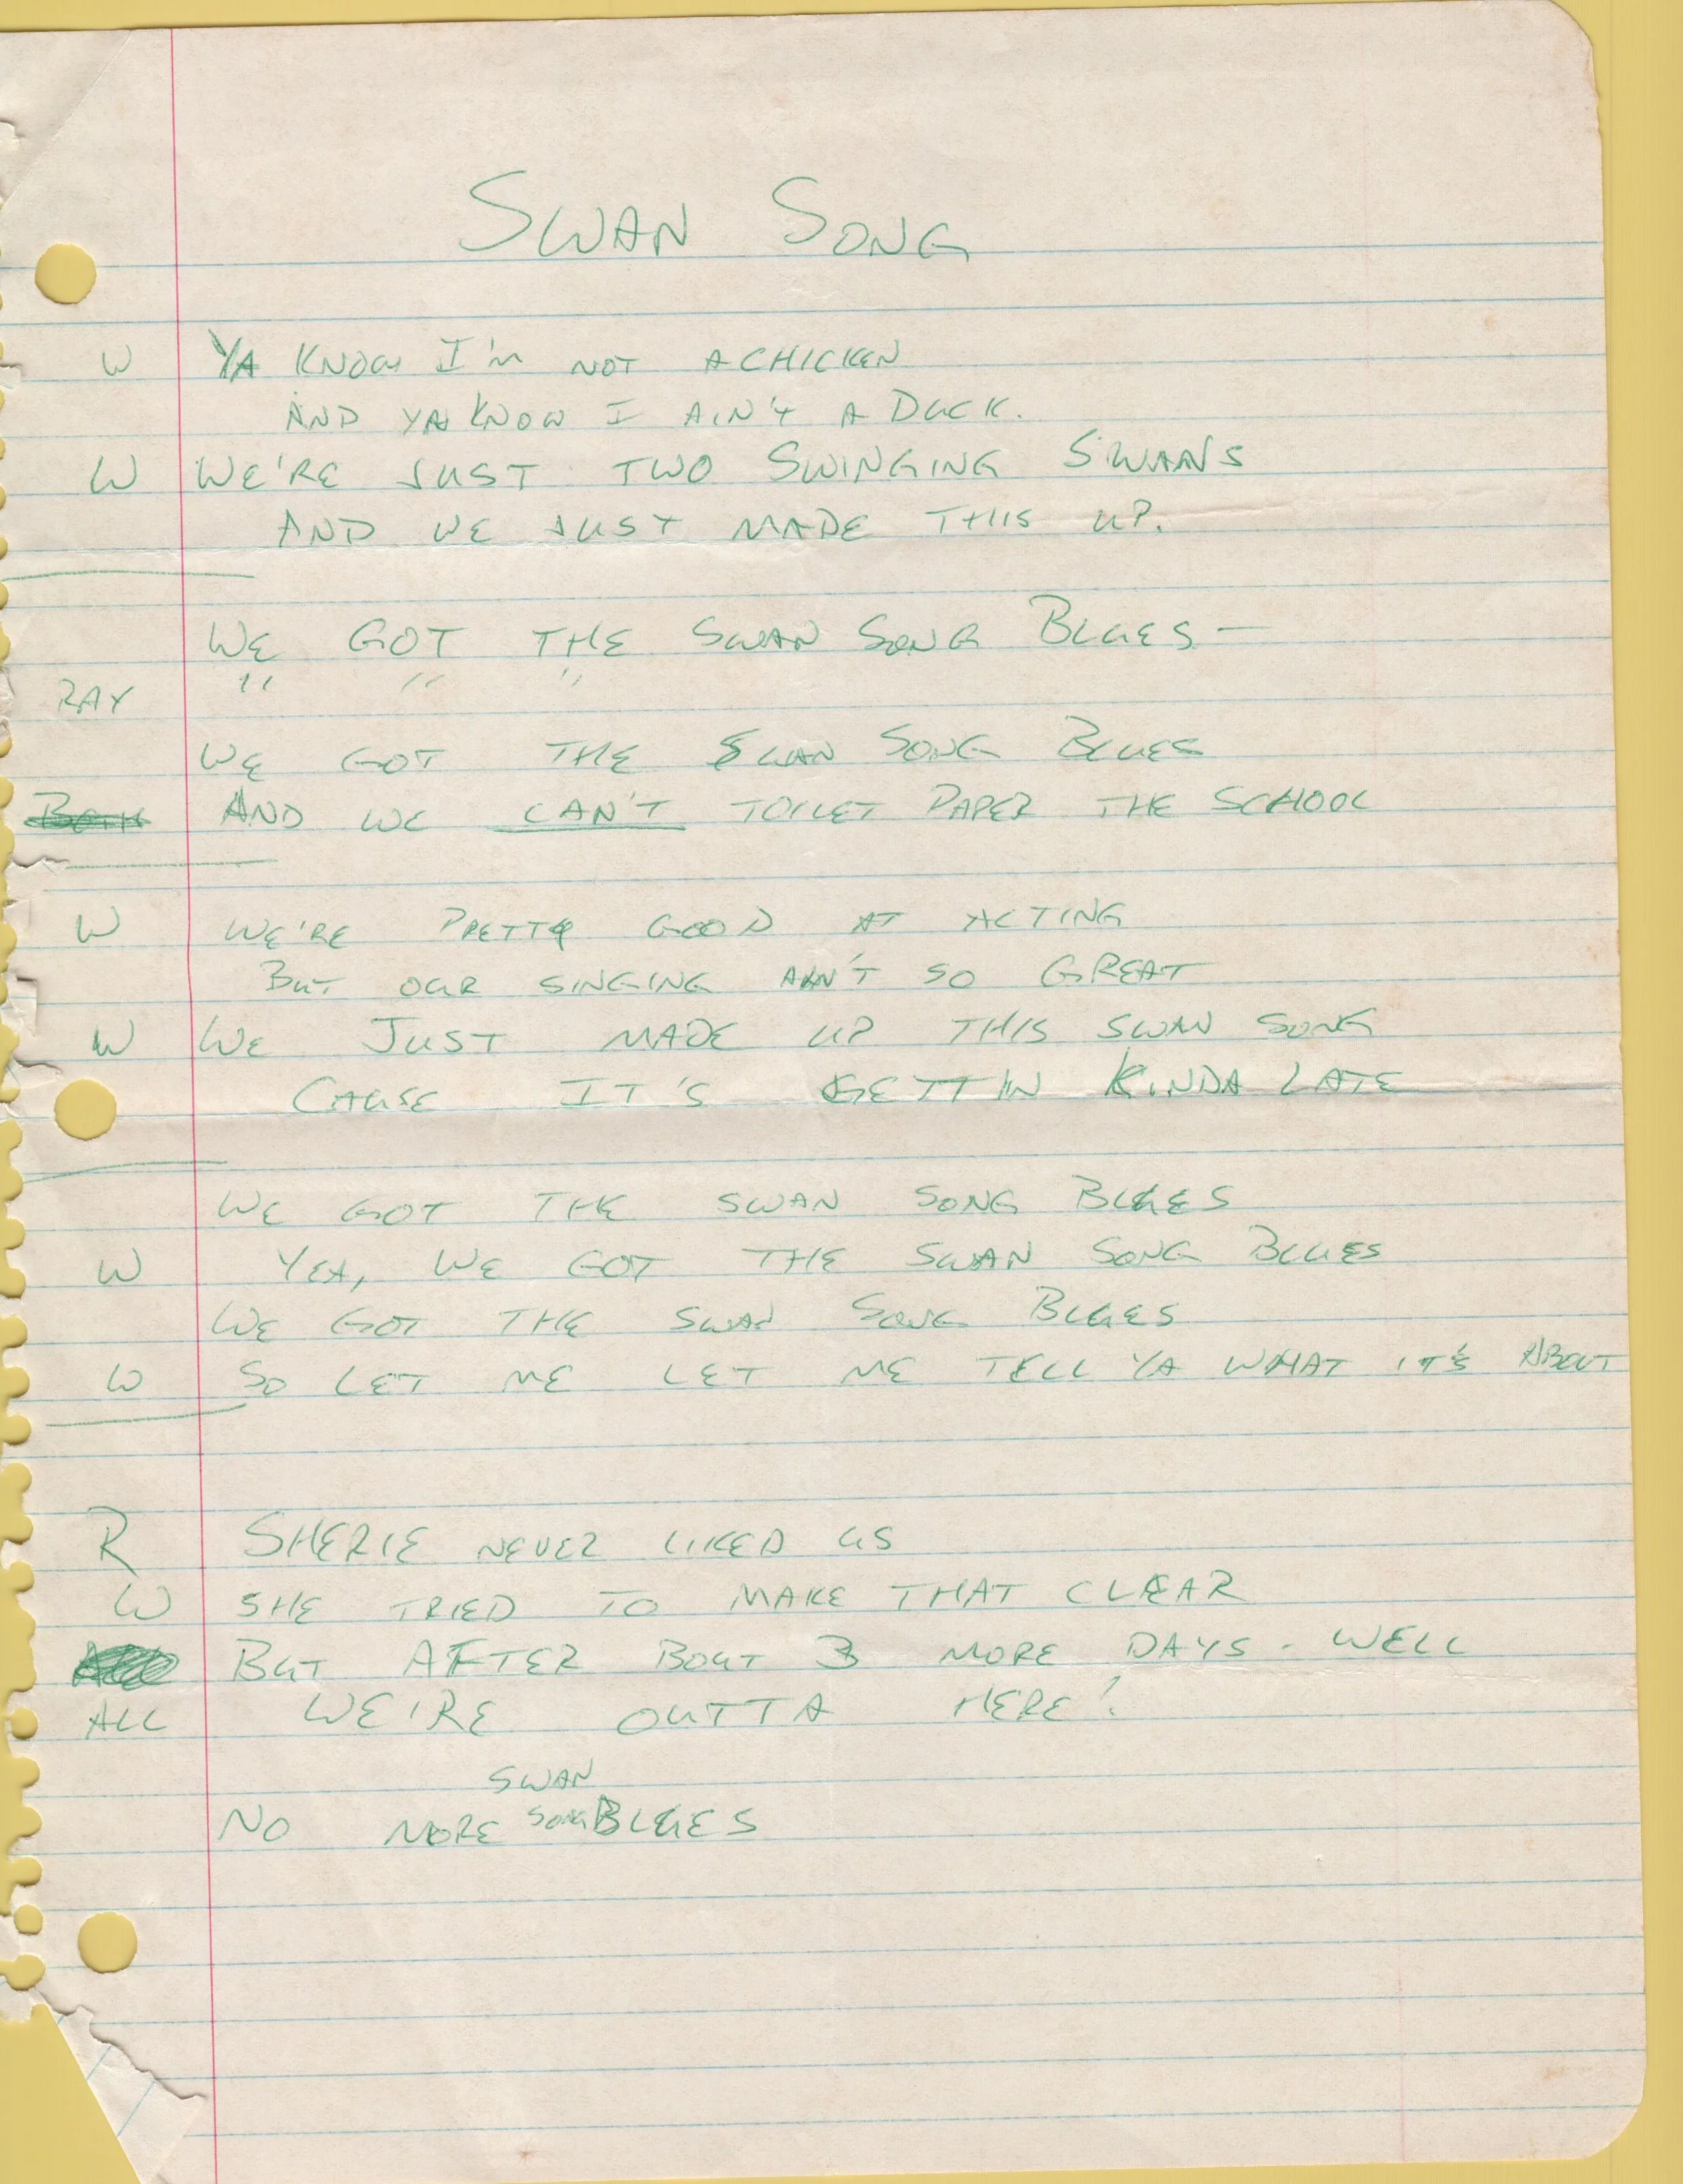 SWAN SONG
W YA KNOW I'M NOT A CHICKEN
AND YA KNOW I AIN'T A DUCK.
W WE'RE JUST TWO SWINGING SWANS
AND WE JUST MADE THIS UP.
WE GOT THE SWAN SONG BLUES —
RAY " " "
WE GOT THE SWAN SONG BLUES
BOTH AND WE CAN'T TOILET PAPER THE SCHOOL
W WE'RE PRETTY GOOD AT ACTING
BUT OUR SINGING AIN'T SO GREAT
W WE JUST MADE UP THIS SWAN SONG
CAUSE IT'S GETTIN KINDA LATE
WE GOT THE SWAN SONG BLUES
W YEA, WE GOT THE SWAN SONG BLUES
WE GOT THE SWAN SONG BLUES
W SO LET ME LET ME TELL YA WHAT IT'S ABOUT
R SHERIE NEVER LIKED US
W SHE TRIED TO MAKE THAT CLEAR
BUT AFTER BOUT 3 MORE DAYS - WELL
ALL WE'RE OUTTA HERE!
SWAN
NO MORE SONG BLUES